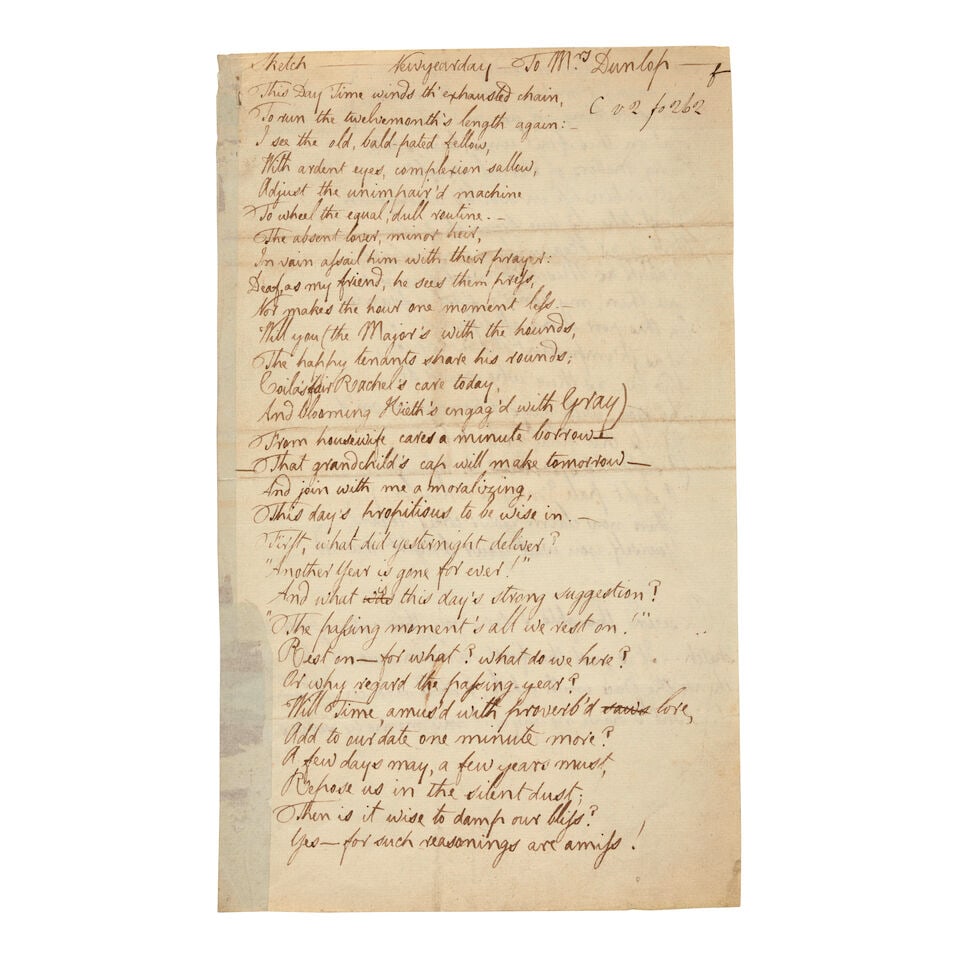 Sketch — Newyearday — To Mrs Dunlop — f
This Day Time winds th' exhausted chain,
C v 2 fo 262
To run the twelvemonth's length again: —
I see the old, bald-pated fellow,
With ardent eyes, complexion sallow,
Adjust the unimpair'd machine
To wheel the equal, dull routine. —
The absent lover, minor heir,
In vain assail him with their prayer:
Deaf, as my friend, he sees them press,
Nor makes the hour one moment less —
Will you (the Major's with the hounds,
The happy tenants share his rounds;
Coila's fair Rachel's care today,
And blooming Kieth's engag'd with Gray)
From housewife cares a minute borrow —
— That grandchild's cap will make tomorrow —
And join with me a moralizing,
This day's propitious to be wise in. —
First, what did yesternight deliver?
"Another Year is gone for ever!"
And what was this day's strong suggestion?
"The passing moment's all we rest on!"
Rest on — for what? what do we here?
Or why regard the passing year?
Will Time, amus'd with proverb'd saws lore,
Add to our date one minute more?
A few days may, a few years must,
Repose us in the silent dust;
Then is it wise to damp our bliss?
Yes — for such reasonings are amiss!